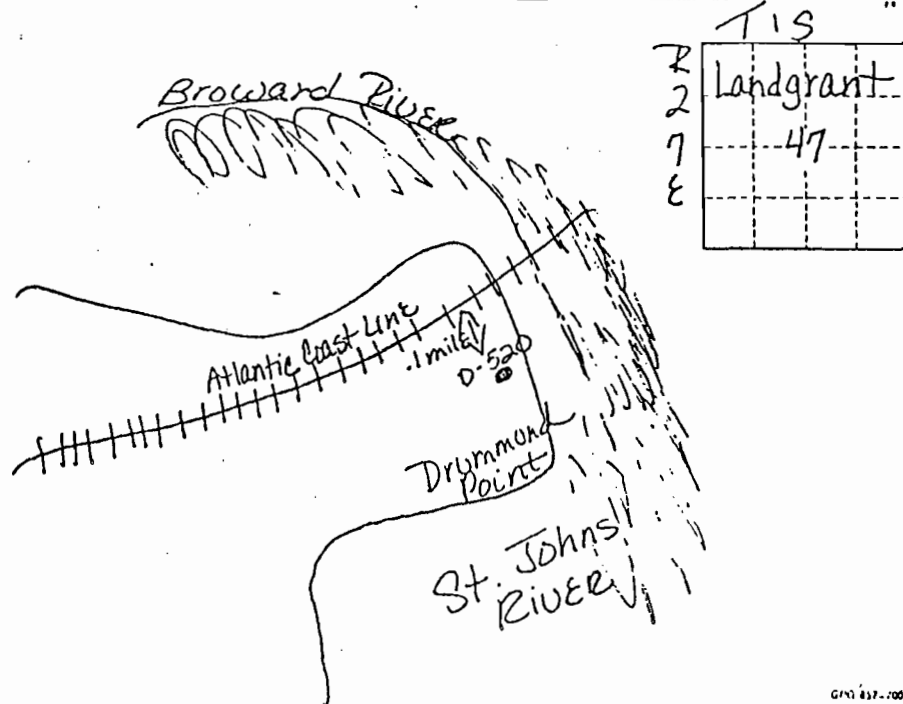 T 1 S
R
2
7
E
Landgrant
47
Broward River
Atlantic Coast Line
.1 mile
D-520
Drummond
Point
St. Johns
RIVER